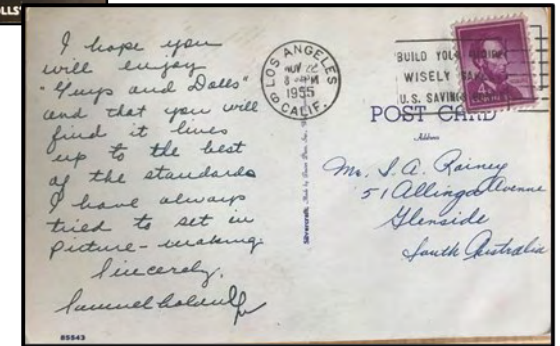 OLLS
I hope you
will enjoy
"Guys and Dolls"
and that you will
find it lives
up to the best
of the standards
I have always
tried to set in
picture-making.
Sincerely,
Samuel Goldwyn
LOS ANGELES
CALIF.
NOV 22
PM
1955
BUILD YOUR
WISELY
U.S. SAVINGS
POST CARD
Address
Mr. S. A. Rainey
51 Allinga Avenue
Glenside
South Australia
85543